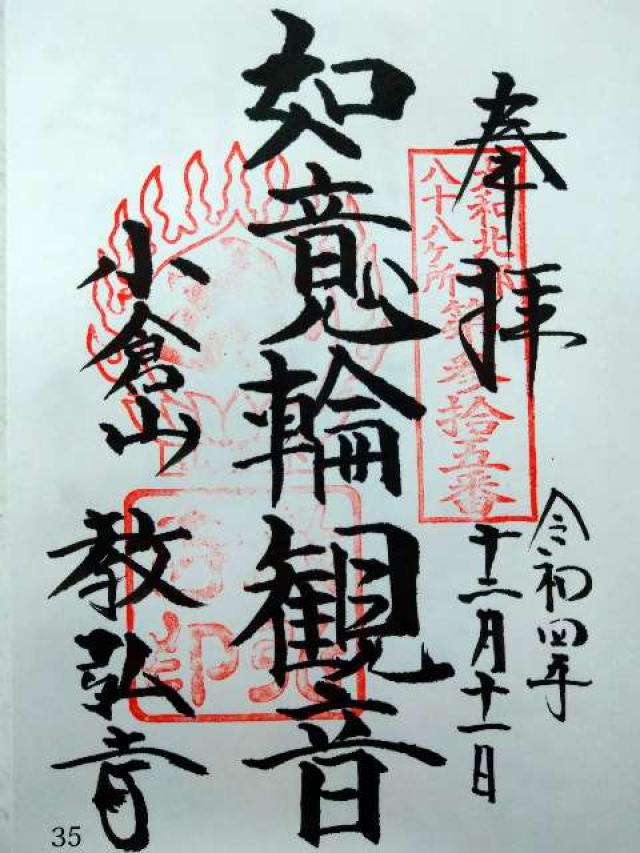 奉拝
大和北部
八十八ヶ所第参拾五番
令和四年
十二月十一日
如意輪観音
小倉山
教弘寺
35